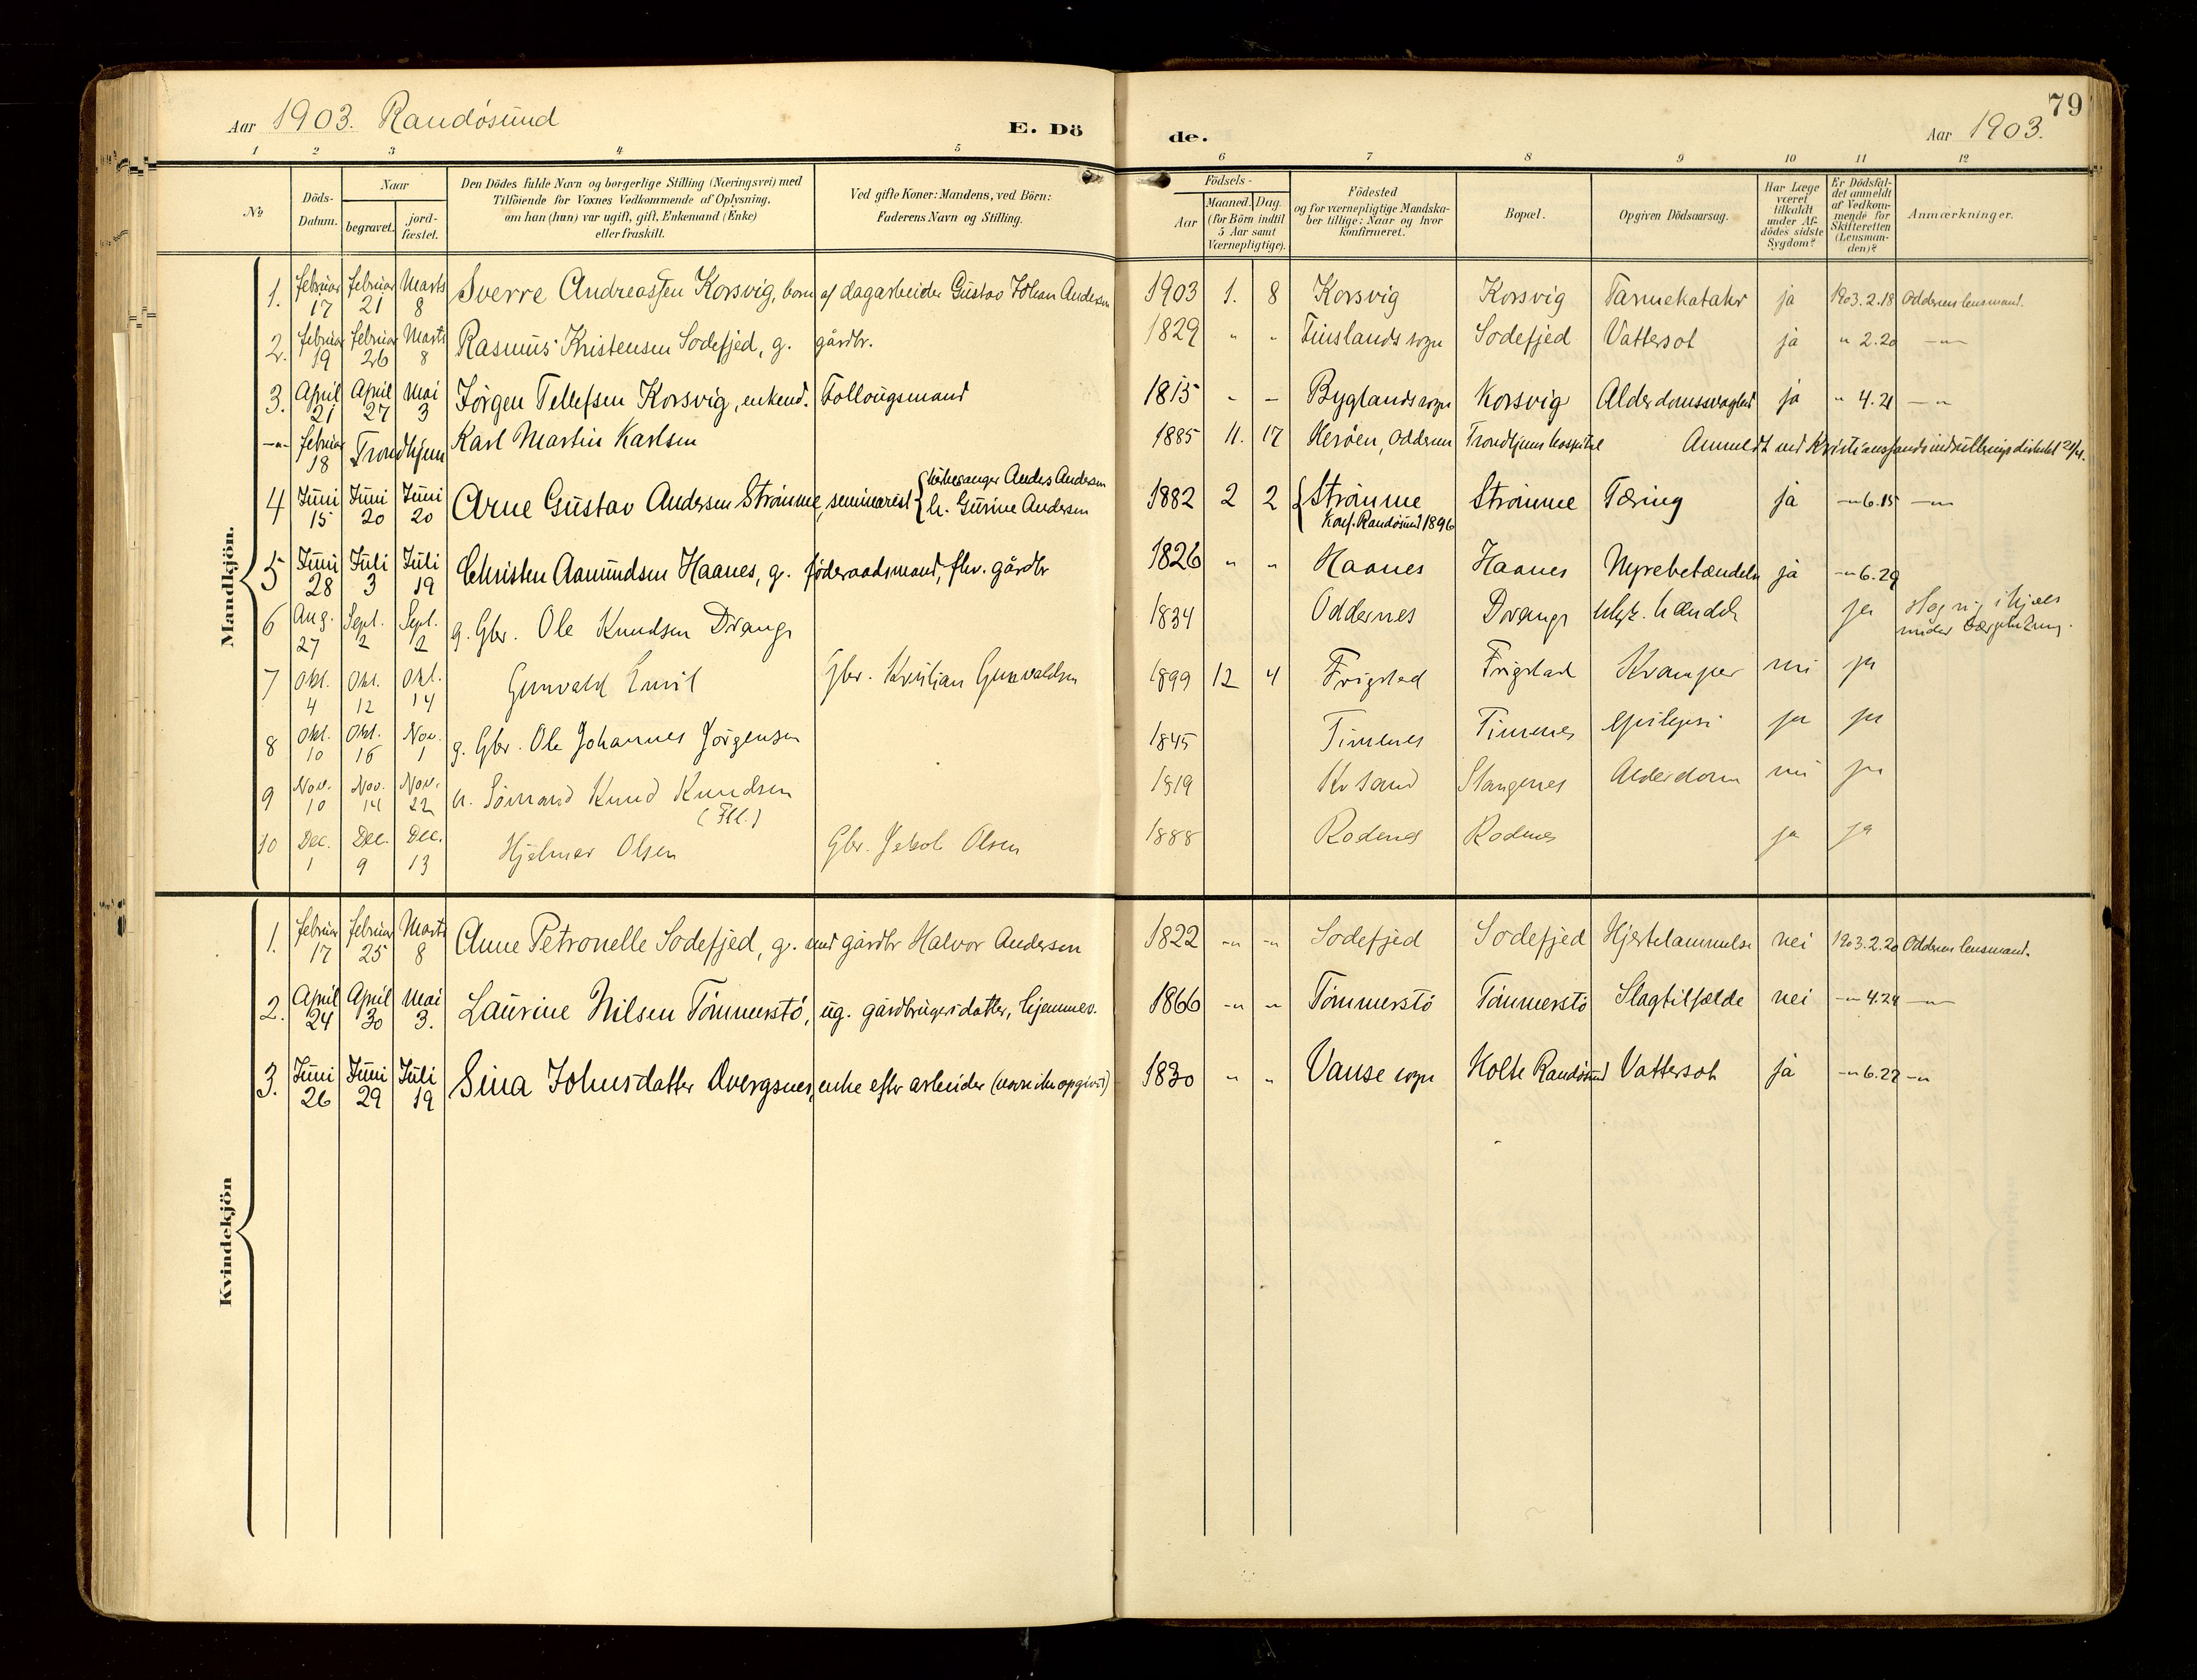 79
Aar 1903. Randösund E. Dö de. Aar 1903.
1 2 3 4 5 6 7 8 9 10 11 12
No
Döds-
Datum.
Naar
begravet. jord-
fæstet.
Den Dödes fulde Navn og borgerlige Stilling (Næringsvei) med
Tilföiende for Voxnes Vedkommende af Oplysning,
om han (hun) var ugift, gift, Enkemand (Enke)
eller fraskilt.
Ved gifte Koner: Mandens, ved Börn:
Faderens Navn og Stilling.
Födsels-
Aar
Maaned. Dag.
(for Börn indtil
5 Aar samt
Værnepligtige).
Födested
og for værnepligtige Mandska-
ber tillige: Naar og hvor
konfirmeret.
Bopæl.
Opgiven Dödsaarsag.
Har Læge
været
tilkaldt
under Af-
dödes sidste
Sygdom?
Er Dödsfal-
det anmeldt
af Vedkom-
mende for
Skifteretten
(Lensman-
den)?
Anmærkninger.
Mandkjön.
1. februar 17 februar 21 Marts 8 Sverre Andreassen Korsvig, barn af dagarbeider Gustav Johan Andersen 1903 1. 8 Korsvig Korsvig Tarmekatahr ja 1903.2.18 Oddernes lensmand.
2. februar 19 februar 26 Marts 8 Rasmus Kristensen Sodefjed, g. gårdbr. 1829 " " Finslands sogn Sodefjed Vattersot ja " 2.20 —"—
3. April 21 April 27 Mai 3 Jörgen Tellefsen Korsvig, enkend. Follougsmand 1815 - - Byglands sogn Korsvig Alderdomssvaghed ja " 4.21 —"
—"— februar 18 Trondhjem Karl Martin Karlsen 1885 11. 17 Herøen, Oddernes Trondhjems hospital Anmeldt ved Kristianssands indrulleringsdistrikt 21/4.
4 Juni 15 Juni 20 Juni 20 Arne Gustav Andersen Strömme, seminarist { kirkesanger Anders Andersen
h. Gurine Andersen 1882 2 2 { Strömme
Konf. Randösund 1896 Strömme Tæring ja —"6.15 —"—
5 Juni 28 Juli 3 Juli 19 Christen Aamundsen Haanes, g. föderaadsmand, fhv. gårdbr 1826 " " Haanes Haanes Nyrebetændelse ja —"6.29
6 Aug. 27 Sept. 2 Sept. 2 g. Gbr. Ole Knudsen Drange 1834 Oddernes Drange ulyk. hændelse ja Slog sig ihjæl
under
7 Okt. 4 Okt. 12 Okt. 14 Gunvald Emil Gbr. Kristian Gunvaldsen 1899 12 4 Frigstad Frigstad Kramper nei ja
8 Okt. 10 Okt. 16 Nov. 1 g. Gbr. Ole Johannes Jörgensen 1845 Timenes Timenes epilepsi ja ja
9 Nov. 10 Nov. 14 Nov. 22 Sömand Knud Knudsen
(Fll.) 1819 Kr sand Stangenes Alderdom nei ja
10 Dec. 1 Dec. 9 Dec. 13 Hjalmar Olsen Gbr. Jakob Olsen 1888 Rodenes Rodenes ja ja
Kvindekjön
1. februar 17 februar 25 Marts 8 Anne Petronelle Sodefjed, g. med gårdbr Halvor Andersen 1822 —"— —"— Sodefjed Sodefjed Hjertelammelse nei 1903.2.20 Oddernes lensmand.
2. April 24 April 30 Mai 3. Laurine Nilsen Tömmerstö, ug. gårdbrugersdatter, hjemmev. 1866 —"— —"— Tömmerstö Tömmerstö Slagtilfælde nei —"—4.24 —"—
3. Juni 26 Juni 29 Juli 19 Sina Johnsdatter Dvergsnes, enke efter arbeider (navn ikke opgivet) 1830 " " Vanse sogn Holte Randösund Vattersot ja —"6.27 —"